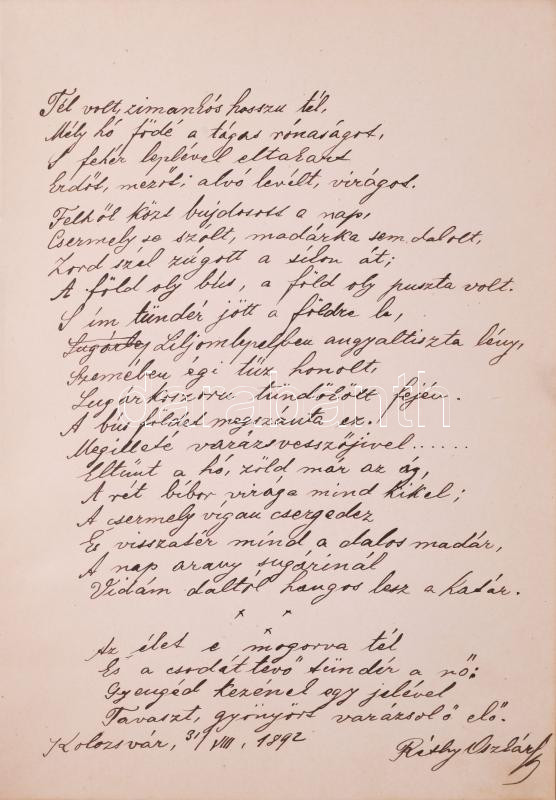 Tél volt, zimankós hosszu tél,
Mély hó födé a tágas rónaságot,
S fehér leplével eltakart
Erdőt, mezőt; alvó levélt, virágot.
Felhők közt bujdosott a nap,
Csermely se szólt, madárka sem dalolt,
Zord szél zúgott a síkon át;
A föld oly bús, a föld oly puszta volt.
S ím tündér jött a földre le,
Liljomlepelben angyaltiszta lény,
Szemében égi tűz honolt,
Sugárkoszoru tündöklött fején.
A bús földet megszánta ez.
Megilleté varázsvesszőjivel......
Eltünt a hó, zöld már az ág,
A rét bíbor virága mind kikel;
A csermely vigan csergedez
És visszatér mind a dalos madár,
A nap arany sugárinál
Vidám daltól hangos lesz a határ.
x x
x
Az élet e mogorva tél
És a csodáttevő tündér a nő:
Gyengéd kezének egy jelével
Tavaszt, gyönyört varázsol ő elő.
Kolozsvár, 31/VIII, 1892
darabanth